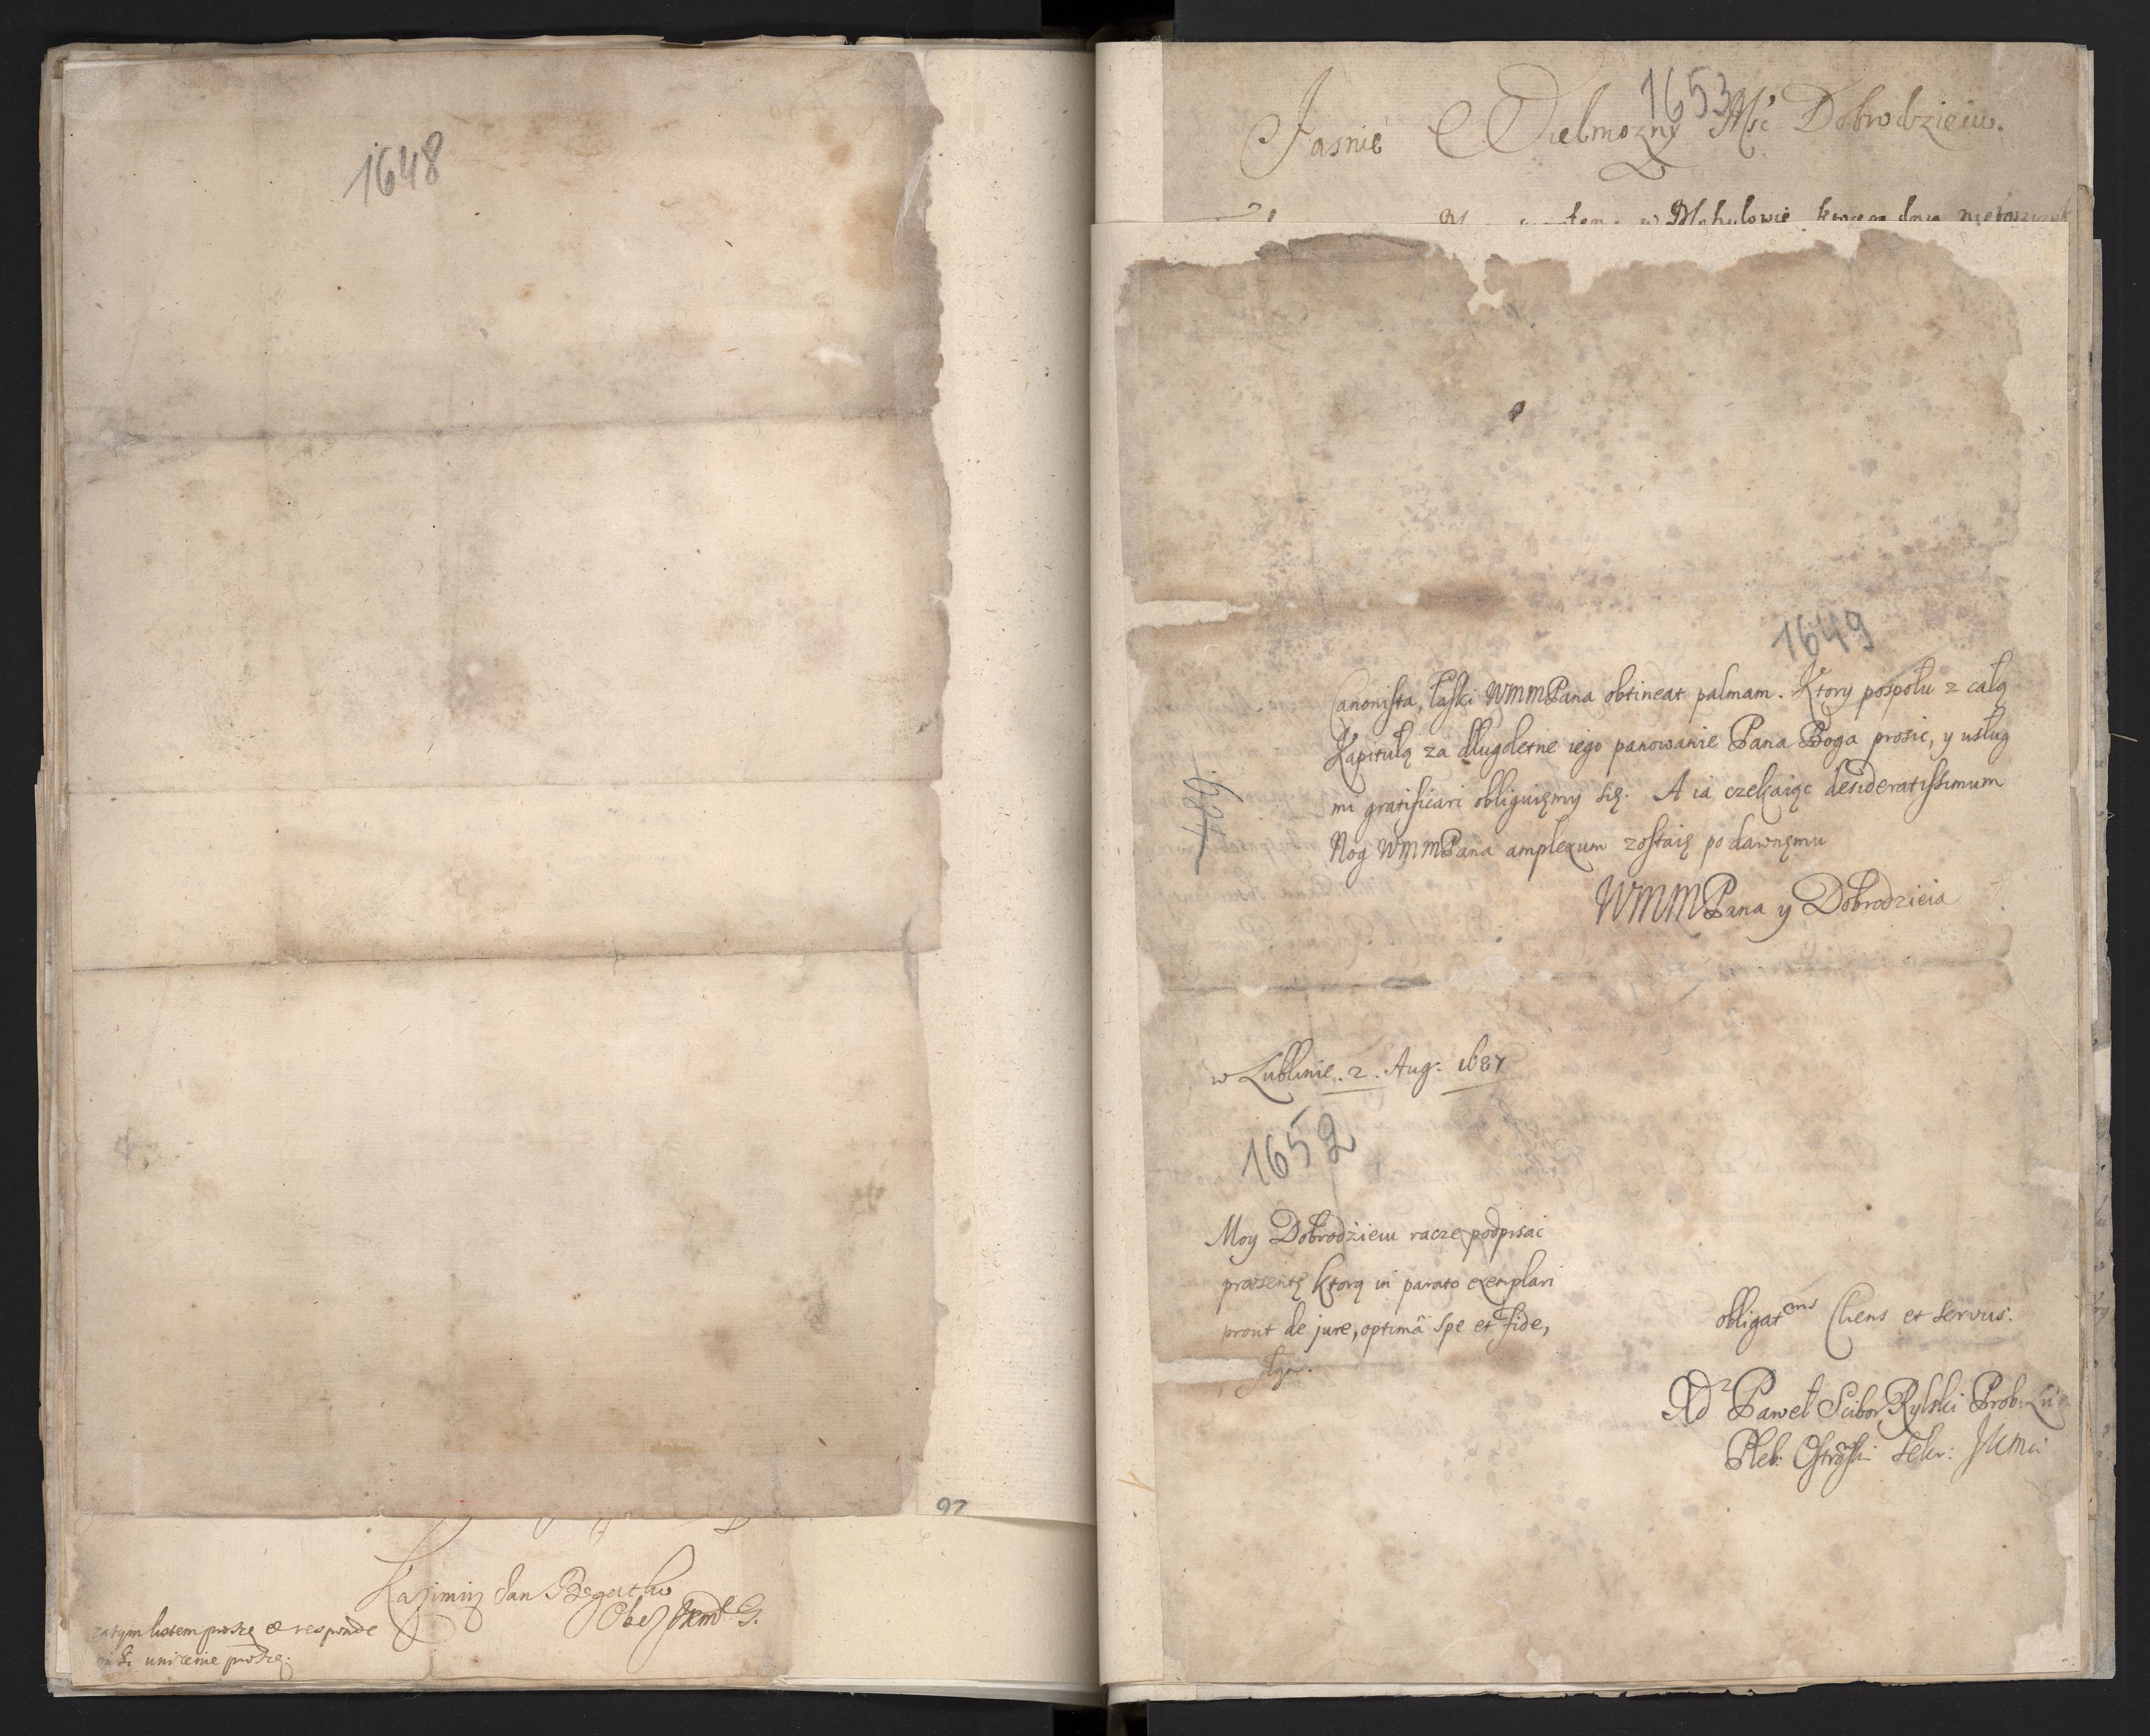 1648
97
Kazimirz Jan
zatym listem proszę o responde
unizenie proszę.
1653
Jasnie Wielmozny Mśc Dobrodzieiu.
w Mohylowie
1649
Canonista, łaski WMMPana obtineat palmam. Ktory pospołu z całą
Kapitułą za długoletne iego panowanie Pana Boga prosic, y usług
mi gratificari obliguięmy się. A ia czekaiąc desideratissimum
Nog WMMPana amplexum zostaię po dawnęmu
WMMPana y Dobrodzieia
1687
w Lublinie. 2. Aug: 1687
1652
Moy Dobrodzieiu racze podpisac
praesentę ktorą in parato exemplari
prout de jure, optimâ spe et fide,
obligatms Cliens et servus.
Xd Paweł Scibor Rylski Prob:
Pleb: Ostrowski Sekr: JKMci